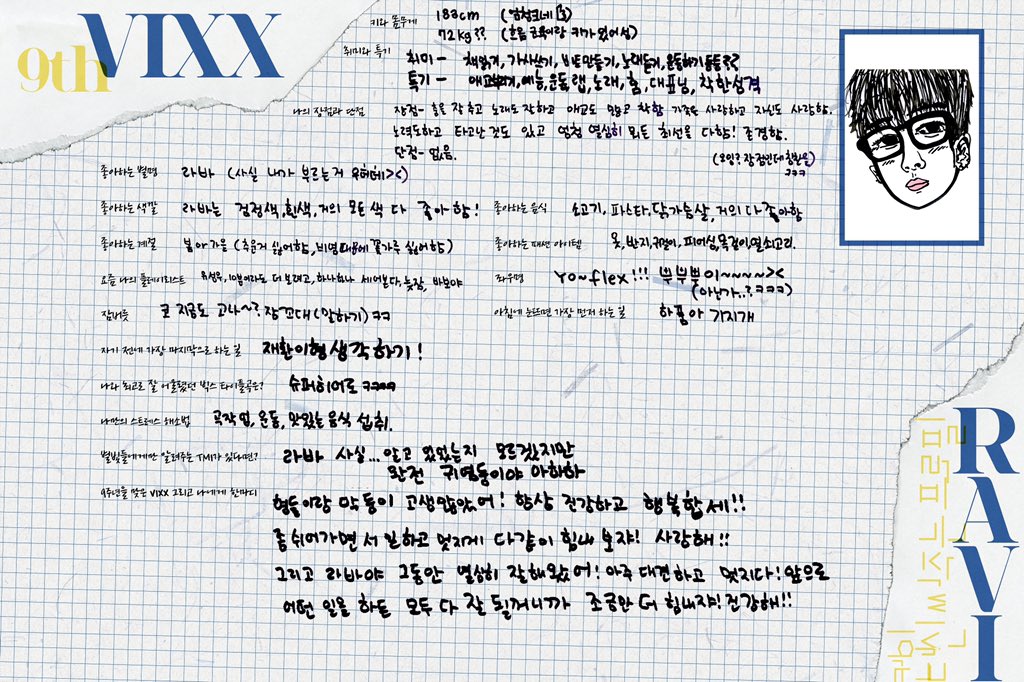 9th VIXX
키와 몸무게 183cm (엄청크네)
72kg?? (흐음 근육이랑 키가 있어서)
취미와 특기
취미 - 책읽기, 가사쓰기, 비트만들기, 노래듣기, 운동하기 등등??
특기 - 애교부리기, 예능, 운동, 랩, 노래, 힘, 대표님, 착한성격
나의 장점과 단점 장점- 춤을 잘 추고 노래도 잘하고 애교도 많고 착함 가족을 사랑하고 자신도 사랑함.
노력도하고 타고난 것도 있고 엄청 열심히 모든 최선을 다함! 존경함.
단점- 없음. (모잉? 장점인데 칭찬을)
ㅋㅋㅋ
좋아하는 별명 라바 (사실 내가 부르는거 우헤헤><)
좋아하는 색깔 라바는 검정색, 흰색, 거의 모든 색 다 좋아함!
좋아하는 음식 소고기, 파스타, 닭가슴살, 거의 다 좋아함
좋아하는 계절 봄 아 가을 (추운거 싫어함, 비염때문에 꽃가루 싫어함)
좋아하는 패션 아이템 옷, 반지, 귀걸이, 피어싱, 목걸이, 열쇠고리.
요즘 나의 플레이리스트 유성우, 10분이라도 더 보려고, 하나하나 세어본다, 늦잠, 바보야
좌우명 Yo~flex!!! 뿌뿌뿡이~~~~><
(아닌가..? ㅋㅋㅋㅋ)
잠버릇 코 지금도 고나~? 잠꼬대 (말하기) ㅋㅋ
아침에 눈뜨면 가장 먼저 하는 일 하품아 기지개
자기 전에 가장 마지막으로 하는 일 재환이형 생각하기!
나와 최고로 잘 어울렸던 빅스 타이틀곡은? 슈퍼히어로 ㅋㅋㅋㅋ
나만의 스트레스 해소법 곡작업, 운동, 맛있는 음식 섭취.
별빛들에게만 알려주는 TMI가 있다면? 라바 사실... 알고 있었는지 모르겠지만
완전 귀염둥이야 아하하
9주년을 맞은 VIXX 그리고 나에게 한마디
형들이랑 막둥이 고생많았어! 항상 건강하고 행복합세!!
좀 쉬어가면서 일하고 멋지게 다같이 힘내 보쟈! 사랑해!!
그리고 라바야 그동안 열심히 잘해왔어! 아주 대견하고 멋지다! 앞으로
어떤 일을 하든 모두 다 잘 될꺼니까 조금만 더 힘내쟈! 건강해!!
RAVI